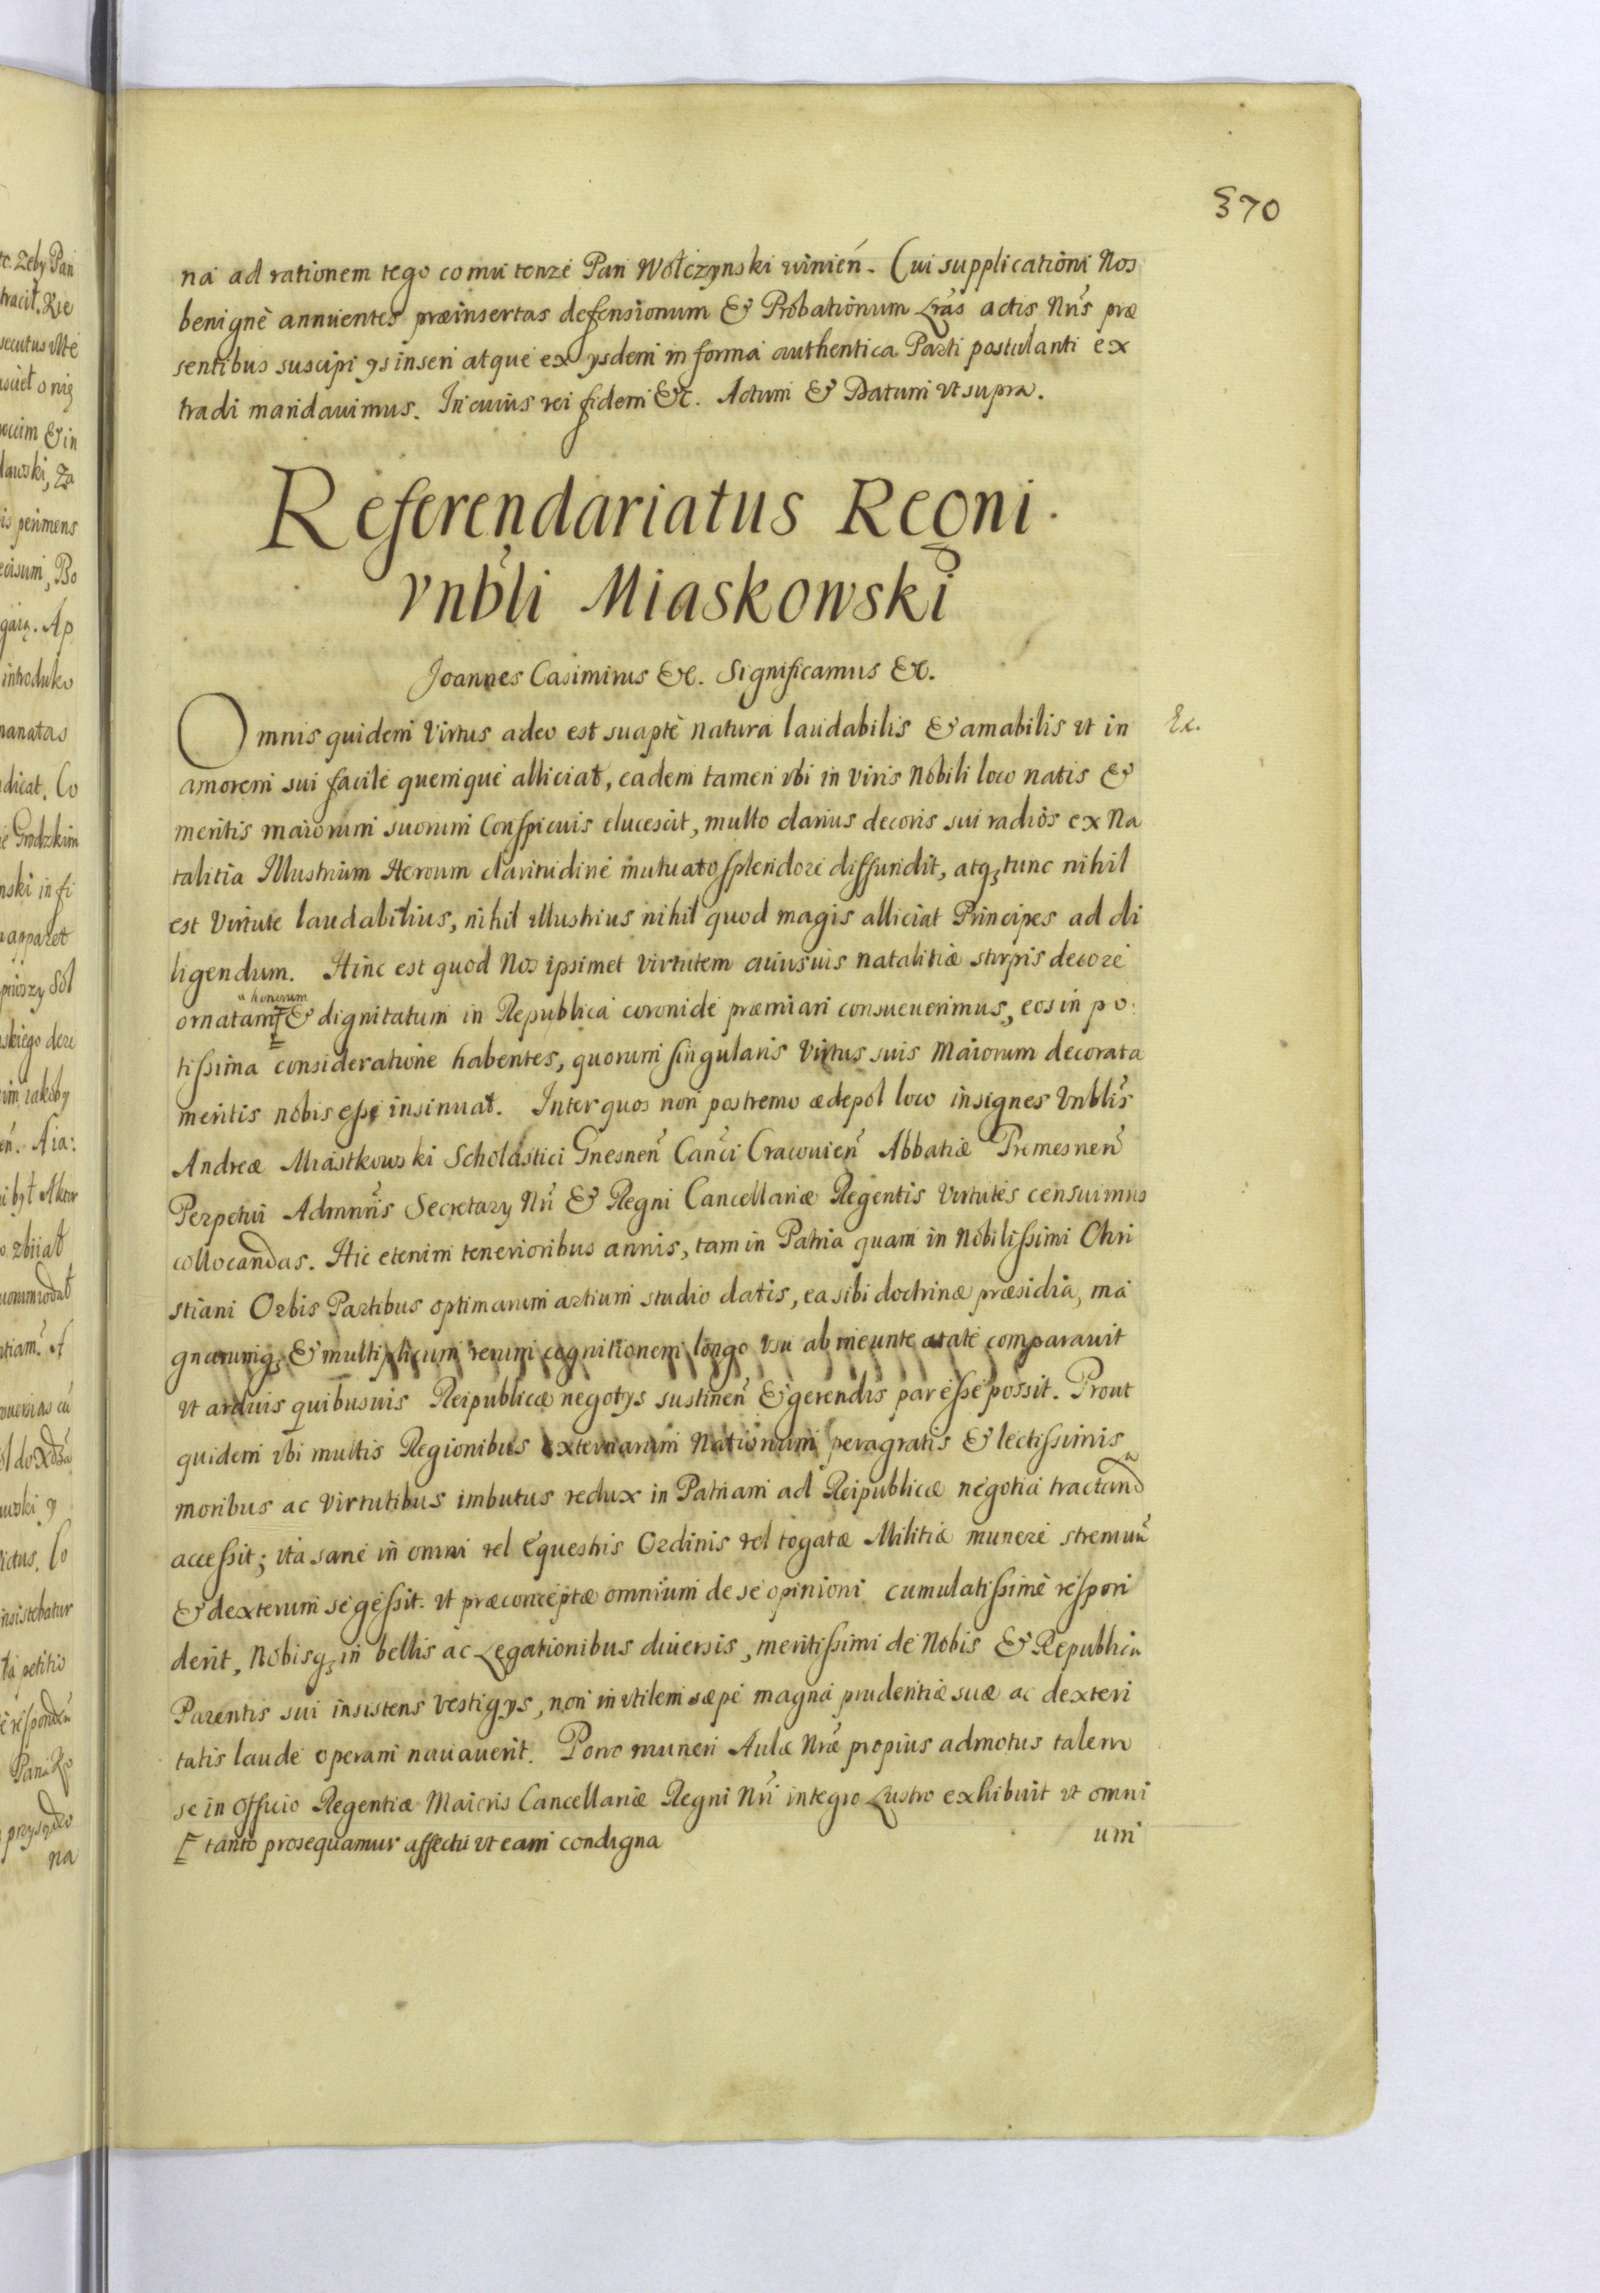 370
na ad rationem tego co mu tenze Pan Wołczynski winień. Cui supplicationi Nos
benignè annuentes præinsertas defensionum & Probationum Lrãs actis Nrĩs præ
sentibus suscipi ijs inseri atque ex ijsdem in forma authentica Parti postulanti ex
tradi mandauimus. In cuius rei fidem &c. Actum & Datum vt supra.
Referendariatus Regni.
Vnbli Miaskowski
Joannes Casimirus &c. Significamus &c.
Omnis quidem Virtus adeo est suaptè natura laudabilis & amabilis vt in
Ex.
amorem sui facile quemque alliciat, eadem tamen vbi in viris Nobili loco natis &
meritis maiorum suorum Conspicuis elucescit, multo clarius decoris sui radios ex Na
talitia Illustrium Heroum claritudine mutuato splendore diffundit, atq3 tunc nihil
est Virtute laudabilius, nihil illustrius nihil quod magis alliciat Principes ad di
ligendum. Hinc est quod Nos ipsimet virtutem auiusuis natalitiæ stirpis decore
honorum
ornatam & dignitatum in Republica coronide præmiari consueuerimus, eos in po
tissima consideratione habentes, quorum singularis Virtus suis Maiorum decorata
meritis nobis esse insinuat. Inter quos non postremo ædepol loco insignes Vnblis
Andreæ Miastkowski Scholastici Gnesnen̄ Can̄ci Cracouien̄ Abbatiæ Premesnen̄
Perpetui Admn̄ris Secretarij Nri & Regni Cancellariæ Regentis Virtutes censuimus
collocandas. Hic etenim tenerioribus annis, tam in Patria quam in Nobilissimi Chri
stiani Orbis Partibus optimarum artium studio datis, ea sibi doctrinæ præsidia, ma
gnarumq3 & multiplicum rerum cognitionem longo vsu ab ineunte ætate comparauit
vt arduis quibusuis Reipublicæ negotijs sustinen̄ & gerendis par esse possit. Prout
quidem vbi multis Regionibus externarum Nationum peragratis & lectissimis
moribus ac Virtutibus imbutus redux in Patriam ad Reipublicæ negotia tractanda
accessit; ita sane in omni vel Equestris Ordinis vel togatæ Militiæ munere stremun̄
& dexterum se gessit. vt præconceptæ omnium de se opinioni cumulatissimè respon
derit, Nobisq3 in bellis ac Legationibus diuersis, meritissimi de Nobis & Republica
Parentis sui insistens vestigijs, non invtilem sæpe magna prudentiæ suæ ac dexteri
tatis laude operam nauauerit. Porro muneri Aulæ Nræ propius admotus talem
se in Officio Regentiæ Maioris Cancellariæ Regni Nri integro Lustro exhibuit vt omni
um
tanto prosequamur affectu vt eam condigna